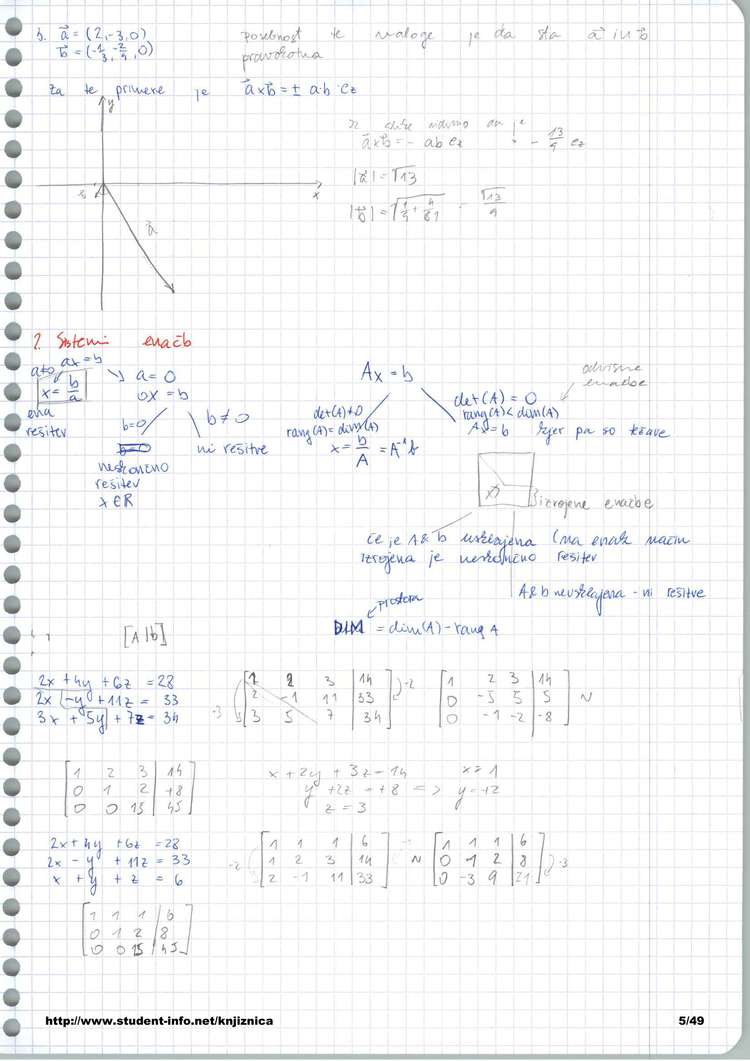 b. a⃗ = (2, -3, 0)
b⃗ = (-1/3, -2/9, 0)
posebnost te naloge je da sta a⃗ in b⃗
pravokotna
za te primere je a⃗×b⃗ = ± a·b·ez
y
x
a⃗
a⃗×b⃗ = - ab ez = - 13/9 ez
|a⃗| = √13
|b⃗| = √(1/9 + 4/81) = √13/9
2. Sistemi enačb
ax = b
a≠0
x = b/a
ena
rešitev
a = 0
0x = b
b=0
neskončno
rešitev
x ∈ R
b ≠ 0
ni rešitve
Ax = b
det(A) ≠ 0
rang(A) = dim(A)
x = b/A = A⁻¹b
det(A) = 0
rang(A) < dim(A)
Ax = b kjer pa so težave
odvisne
enačbe
izrojene enačbe
če je A & b usklajena (na enak način
izrojena je neskončno rešitev
A & b neusklajena - ni rešitve
prostora
DIM = dim(A) - rang A
[A|b]
2x + 4y + 6z = 28
2x - y + 11z = 33
3x + 5y + 7z = 34
-3
[1 2 3 | 14
2 -1 11 | 33
3 5 7 | 34]
-2
[1 2 3 | 14
0 -5 5 | 5
0 -1 -2 | -8] ~
[1 2 3 | 14
0 1 2 | +8
0 0 15 | 45]
x + 2y + 3z = 14
y + 2z = +8
z = 3
=>
x = 1
y = +2
2x + 4y + 6z = 28
2x - y + 11z = 33
x + y + z = 6
-2
[1 1 1 | 6
1 2 3 | 14
2 -1 11 | 33]
~
[1 1 1 | 6
0 1 2 | 8
0 -3 9 | 21]
·3
[1 1 1 | 6
0 1 2 | 8
0 0 15 | 45]
http://www.student-info.net/knjiznica
5/49